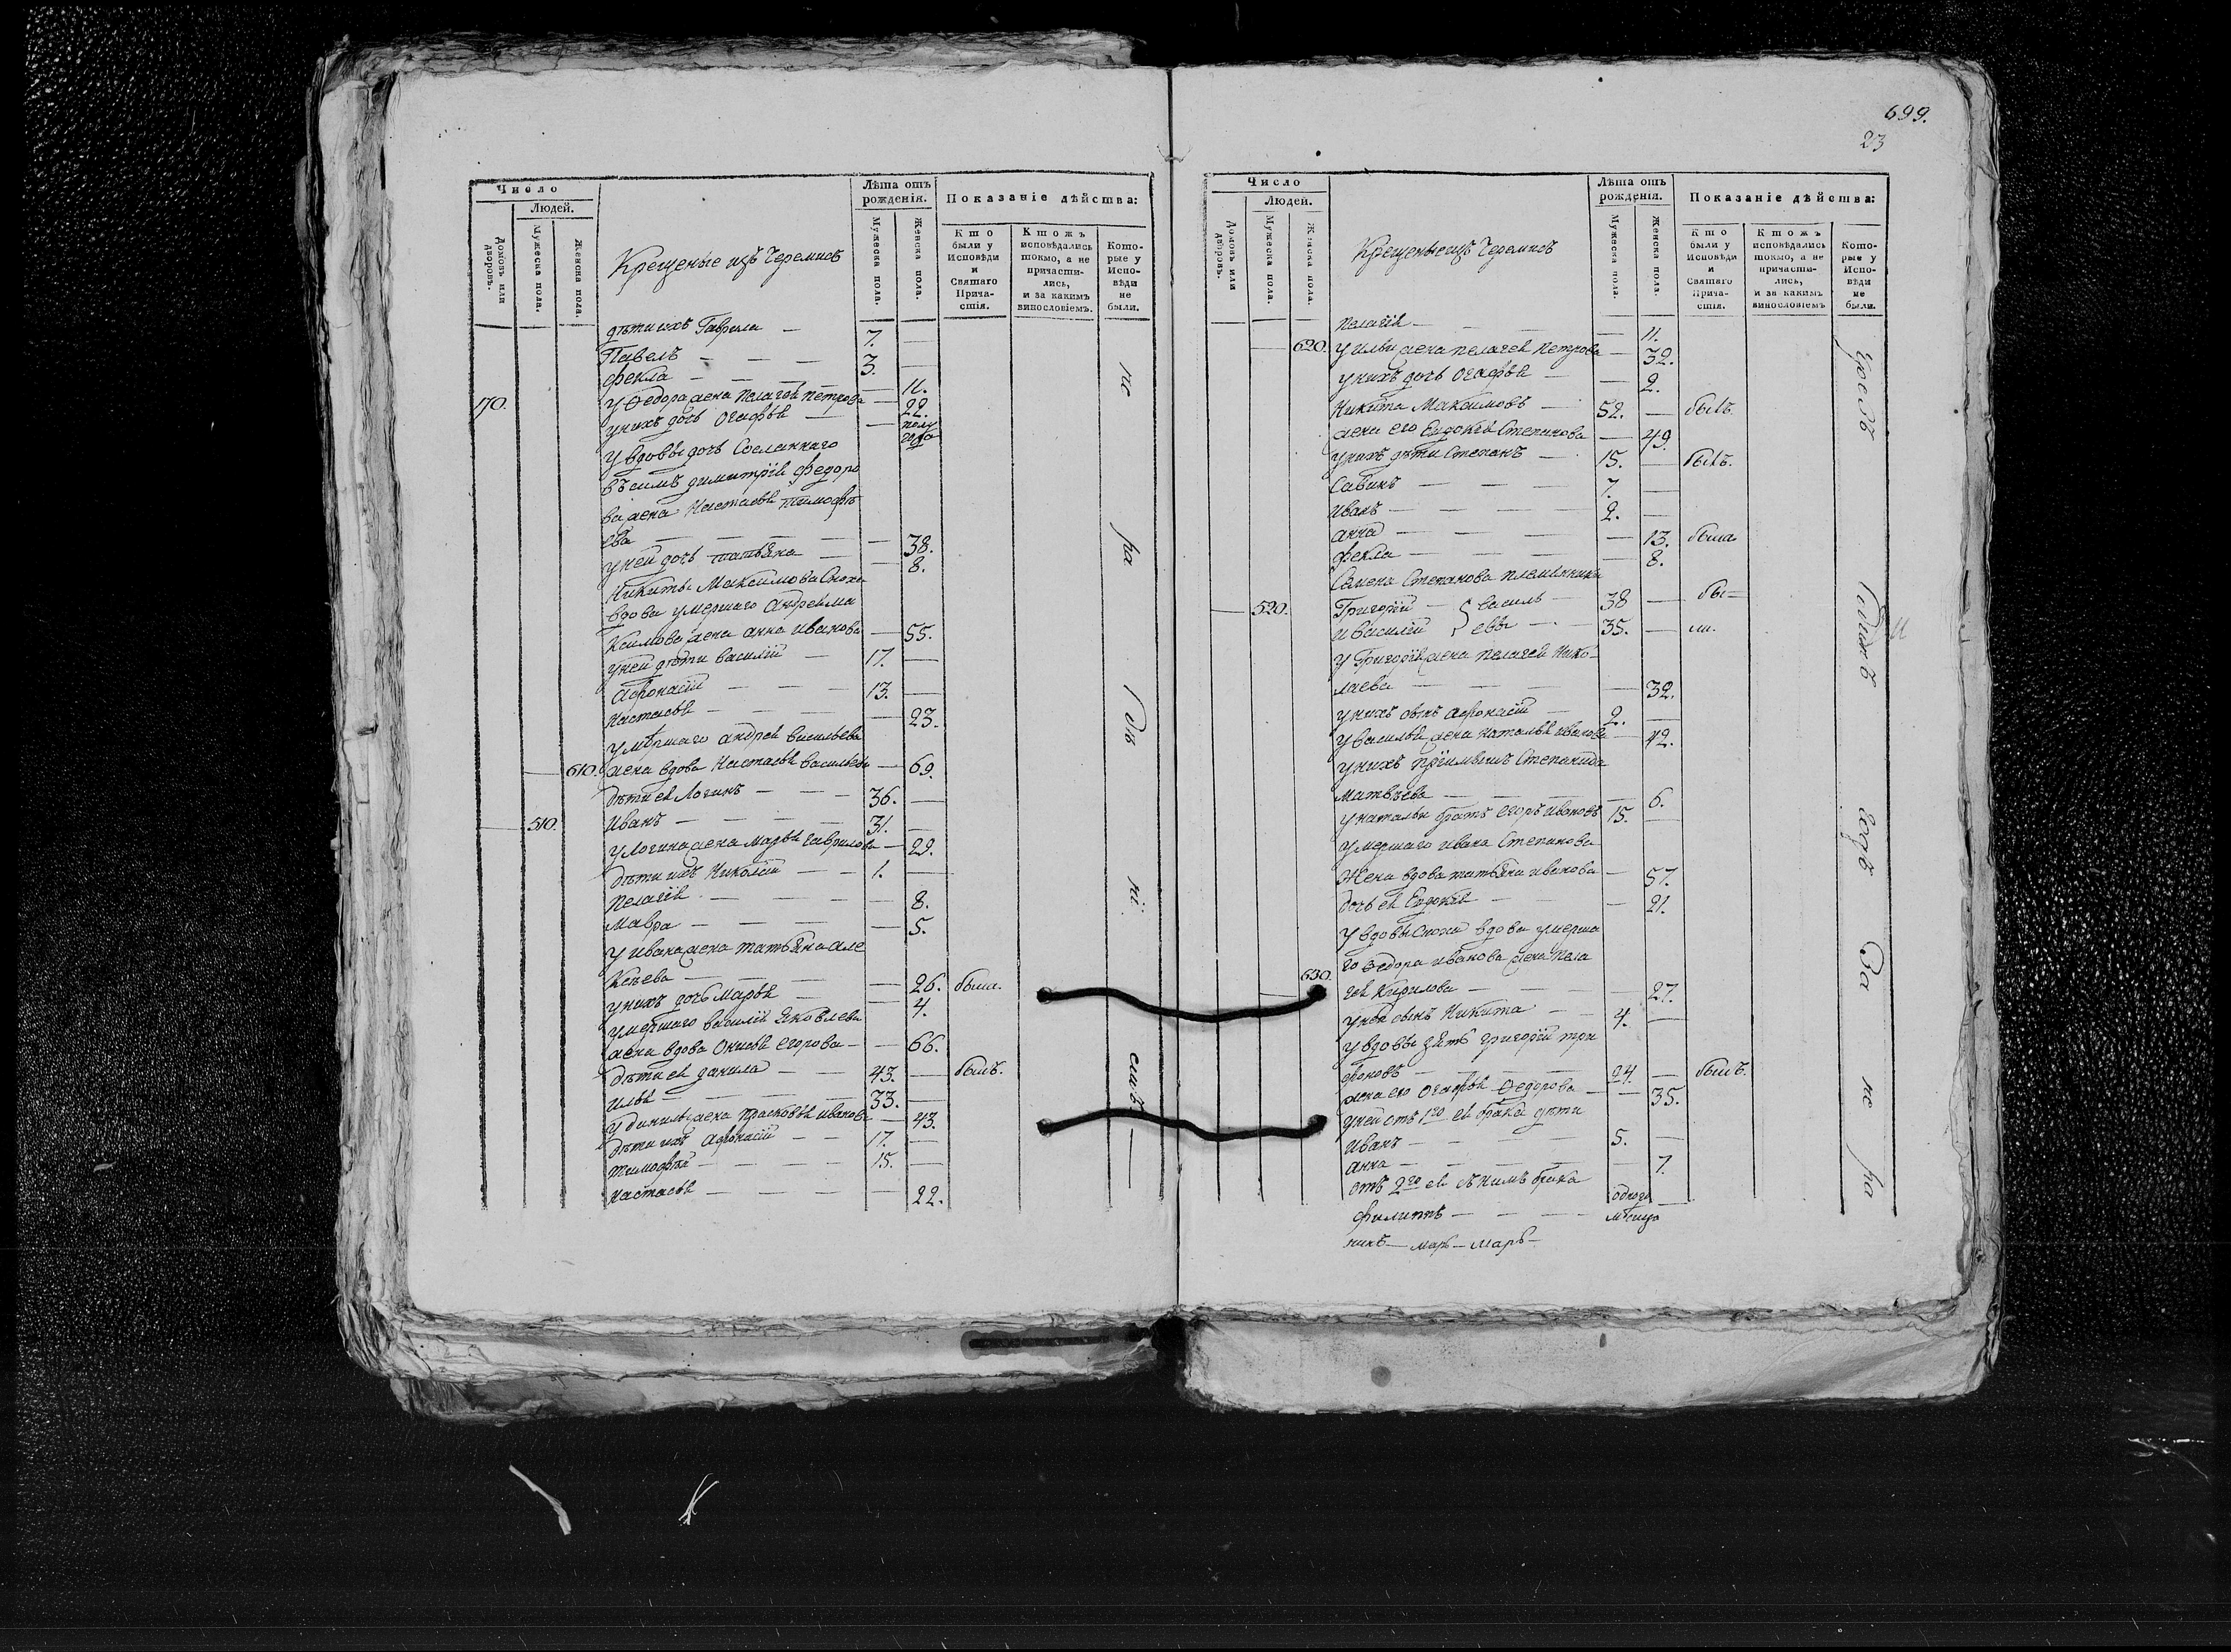 699.
23
Число
Людей.
Домовъ или дворовъ.
Мужеска пола.
Женска пола.
Крещеные изъ Черемисъ
Лѣта отъ рожденія.
Мужеска пола.
Женска пола.
Показаніе дѣйства:
Кто были у Исповѣди и Святаго Причастія.
Ктожъ исповѣдались токмо, а не причастились, и за какимъ винословіемъ.
Которые у Исповѣди не были.
дѣти ихъ Гаврила — 7. —
Павелъ — — — 3. —
Фекла — — — — 11.
170. у Федора жена Пелагея Петрова — 22.
у нихъ дочь Огафья — — полу года
у вдовы дочь Сосланнаго
Димитрія Федоро
ва жена Настасья Тимофѣ
ева — — — — 38.
у ней дочь татьяна — — 8.
Никиты Максимова Сноха
вдова умершаго Андрея Ма
ксимова жена анна Иванова — 55.
у ней дѣти василій — 17. —
Афонасій — — — 13. —
Настасья — — — — 23.
умершаго андрея васильева
610. жена вдова Настасья васильева — 69.
дѣти ея Логинъ — — — 36. —
510. Иванъ — — — — 31. —
у Логина жена Марья Гаврилова — 29.
дѣти ихъ Николай — — 1. —
Пелагея — — — — 8.
Мавра — — — — 5.
у Ивана жена татьяна Але
ксѣева — — — — 26. была.
у нихъ дочь Марья — — 4.
умершаго василія Яковлева
жена вдова Егорова — — 66.
дѣти ея данила — — 43. — былъ.
Илья — — — — 33. —
у данилы жена Прасковья Иванова — 43.
дѣти ихъ Афонасій — — 17. —
тимофей — — — 15. —
Настасья — — — — 22.
не ра дѣ ні емъ —
Число
Людей.
Домовъ или дворовъ.
Мужеска пола.
Женска пола.
Крещеные изъ Черемисъ
Лѣта отъ рожденія.
Мужеска пола.
Женска пола.
Показаніе дѣйства:
Кто были у Исповѣди и Святаго Причастія.
Ктожъ исповѣдались токмо, а не причастились, и за какимъ винословіемъ
Которые у Исповѣди не были.
Пелагея — — — — 11.
620. у Ильи жена Пелагея Петрова — 32.
у нихъ дочь Огафья — — 2.
Никита Максимовъ — 52. — былъ.
жена его Евдокія Степанова — 49.
у нихъ дѣти Степанъ — 15. — былъ.
Савинъ — — — 7. —
Иванъ — — — — 2. —
анна — — — — 13. была
Фекла — — — — 8.
Семена Степанова племянники
520. Григорій — } василь — 38 — бы=
и василій } евы — 35. — ли.
у Григорія жена Пелагея Нико
лаева — — — — 32.
у нихъ сынъ Афонасій — 2. —
у василья жена Наталья Иванова — 42.
у нихъ пріемышъ Степанида
Матвѣева — — — — 6.
у натальи братъ Егоръ Ивановъ 15. —
умершаго ивана Степанова
Жена вдова татьяна иванова — 57.
дочь ея Евдокія — — 21.
у вдовы Сноха вдова умерша
го Федора иванова жена Пела
630. гея Кирилова — — — 27.
у ней сынъ Никита — — 4. —
у вдовы зять Григорій три
фоновъ — — — — 24. — былъ.
жена его Огафья Федорова — — 35.
у ней отъ 1го ея брака дѣти
Иванъ — — — — 5. —
анна — — — — 7.
отъ 2го ея съ нимъ брака
Филиппъ — — — — одного мѣсяца —
За не ра